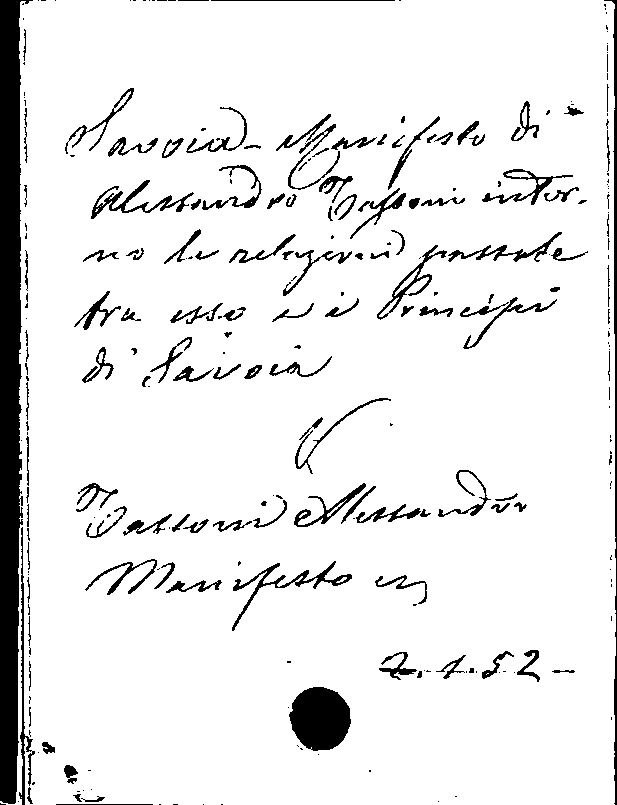 Savoia - Manifesto di
Alessandro Tassoni intor-
no le relazioni passate
tra esso e i Principi
di Savoia
V
Tassoni Alessandro
Manifesto
Z. 1. 52 -